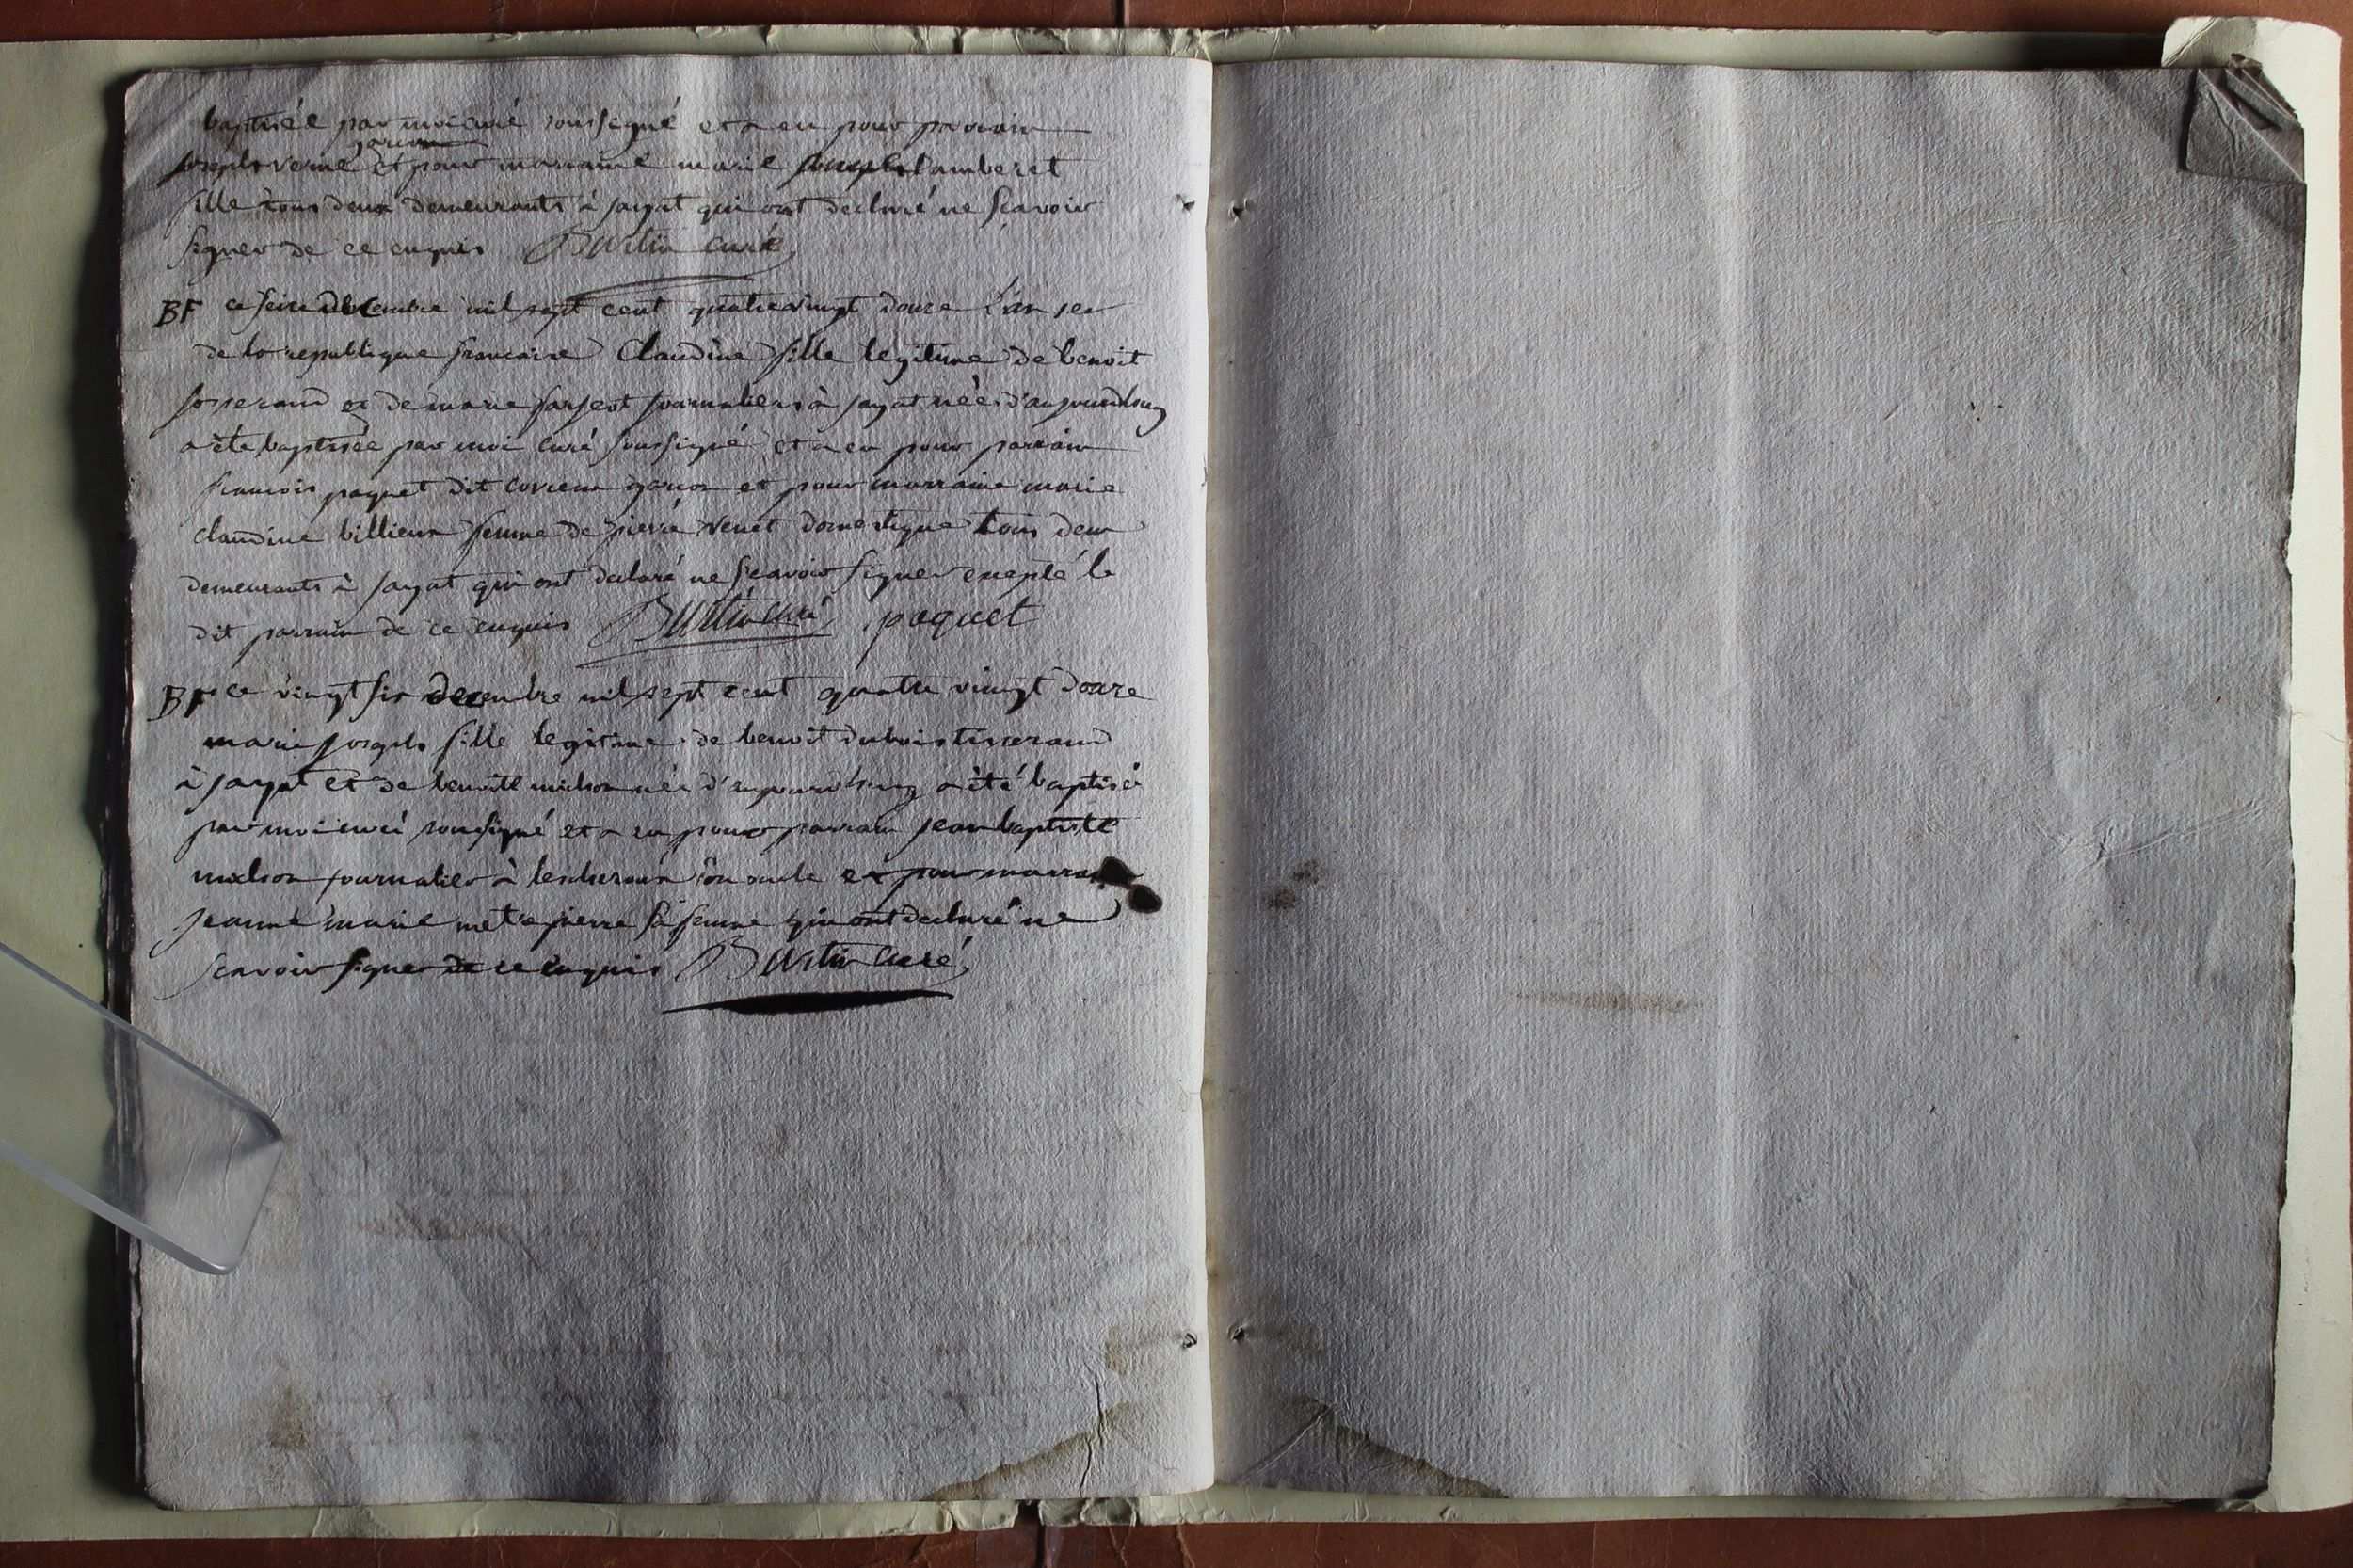 baptisée par moi curé soussigné et a eu pour parrain
garcon
joseph verne et pour marraine marie lamberet
fille tous deux demeurants à jayat qui ont declaré ne scavoir
signer de ce enquis Burtin curé
BF ce seize decembre mil sept cent quatre vingt douze l'an 1er
de la republique francaise Claudine fille legitime de benoit
josserand et de marie journaliers à jayat née d'aujourdhuy
a été baptisée par moi curé soussigné et a eu pour parrain
francois paquet dit garcon et pour marraine marie
claudine billieux femme de pierre venet domestique tous deux
demeurants à jayat qui ont declaré ne scavoir signer excepté le
dit parrain de ce enquis Burtin curé paquet
BF ce vingt six decembre mil sept cent quatre vingt douze
marie joseph fille legitime de benoit dubois tisserand
à jayat et de benoite michon née d'aujourdhuy a été baptisé
par moi curé soussigné et a eu pour parrain jean baptiste
michon journalier à lescheroux son oncle et pour marraine
jeanne marie sa femme qui ont declaré ne
scavoir signer de ce enquis Burtin curé